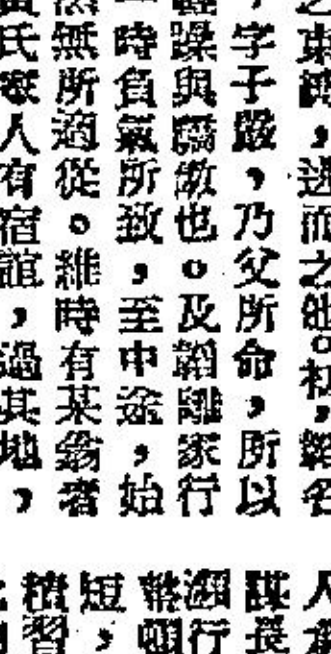 東，逃而之他。初，韜名
，字子嚴，乃父所命，所以
躁與驕傲也。及韜離家行
時負氣所致，至中途，始
無所適從。維時有某翁者
氏人有宿誼，過其地，
人
謀長
瀕行
幣頓
短，
積習